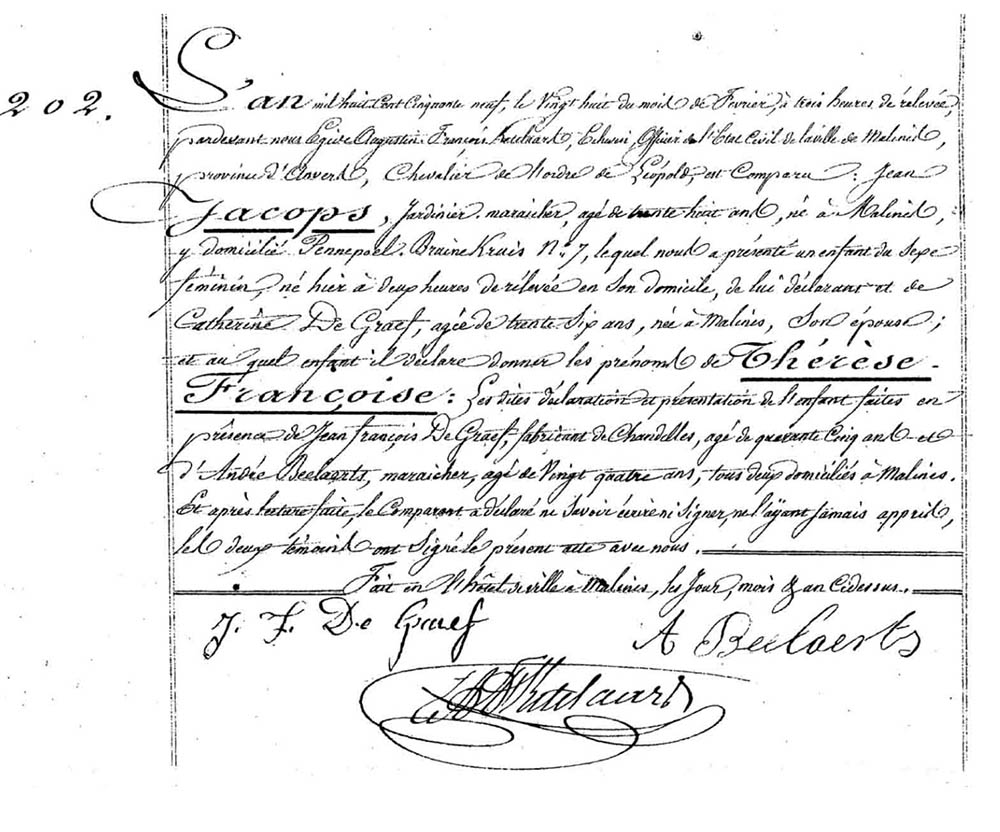 202.
L'an mil huit Cent Cinquante neuf, le Vingt huit du mois de Février, à trois heures de rélevée,
pardevant nous Augustin François Ketelaars, Echevin, Officier de l'Etat Civil de la ville de Malines,
province d'Anvers, Chevalier de l'ordre de Léopold, est Comparu : Jean
Jacops, Jardinier maraicher, agé de trente huit ans, né à Malines,
y domicilié Pennepoel. Bruine Kruis N° 7, lequel nous a présenté un enfant du Sexe
féminin, né hier à deux heures de rélevée en Son domicile, de lui déclarant et de
Catherine De Graef, agée de trente Six ans, née à Malines, Son épouse ;
et au quel enfant il déclare donner les prénoms de Thérèse-
Françoise : Les dites déclaration et présentation de l'enfant faites en
présence de Jean François De Graef, fabricant de Chandelles, agé de quarante Cinq ans et
d'André Beelaerts, maraicher, agé de Vingt quatre ans, tous deux domiciliés à Malines.
Et après lecture faite, le Comparant a déclaré ne Savoir écrire ni Signer, ne l'ayant Jamais appris,
les deux témoins ont Signé le présent acte avec nous.
Fait en l'hôtel de ville à Malines, les Jour, mois & an Cidessus.
J. F. De Graef A Beelaerts